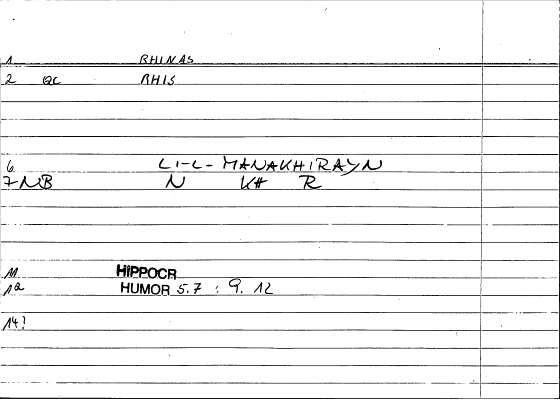 1 RHINAS
2 QC RHIS
6 LI-L-MANAKHIRAYN
7 NB N KH R
11 HIPPOCR
12 HUMOR 5.7 : 9.12
14!